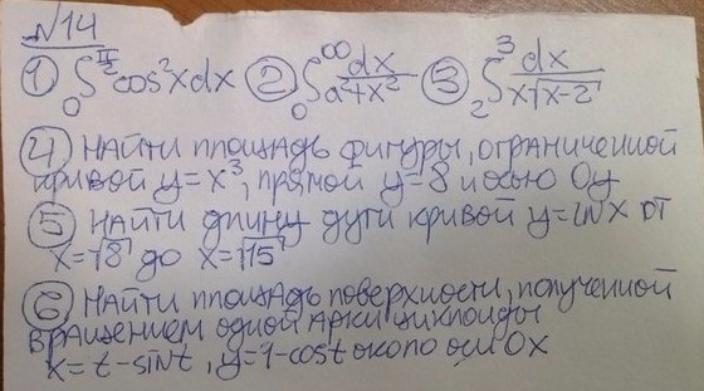 N14
① ₀∫^(π/2) cos²xdx ② ₀∫^∞ dx/(a²+x²) ③ ₂∫³ dx/(x√(x-2))
④ НАЙТИ ПЛОЩАДЬ ФИГУРЫ, ОГРАНИЧЕННОЙ
КРИВОЙ y=x³, ПРЯМОЙ y=8 И ОСЬЮ Oy
⑤ НАЙТИ ДЛИНУ ДУГИ КРИВОЙ y=lNX ОТ
x=√8 ДО x=√15
⑥ НАЙТИ ПЛОЩАДЬ ПОВЕРХНОСТИ, ПОЛУЧЕННОЙ
ВРАЩЕНИЕМ ОДНОЙ АРКИ ЦИКЛОИДЫ
x=t-sint, y=1-cost ОКОЛО ОСИ OX